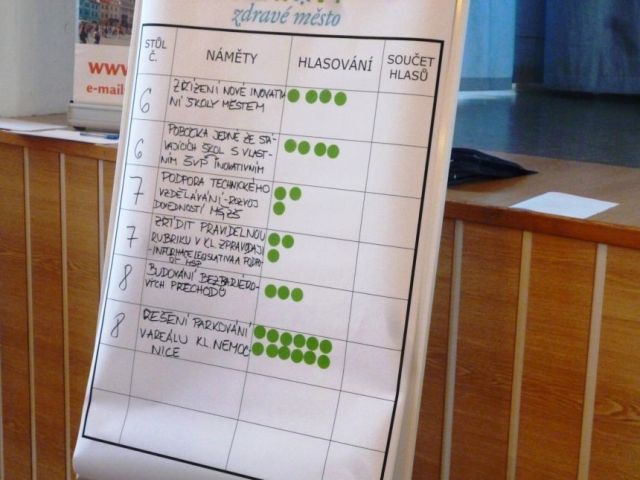 zdravé město
www.
e-mail
STŮL Č.
NÁMĚTY
HLASOVÁNÍ
SOUČET HLASŮ
6
ZŘÍZENÍ NOVÉ INOVATIV
NÍ ŠKOLY MĚSTEM
6
POBOČKA JEDNÉ ZE STÁ-
VAJÍCÍCH ŠKOL S VLAST-
NÍM ŠVP INOVATIVNÍM
7
PODPORA TECHNICKÉHO
VZDĚLÁVÁNÍ-ROZVOJ
DOVEDNOSTÍ MŠ,ZŠ
7
ZŘÍDIT PRAVIDELNOU
RUBRIKU V KL. ZPRAVODAJI
-INFORMACE LEGISLATIVA A
8
BUDOVÁNÍ BEZBARIÉRO-
VÝCH PŘECHODŮ
8
ŘEŠENÍ PARKOVÁNÍ
V AREÁLU KL. NEMOC
NICE